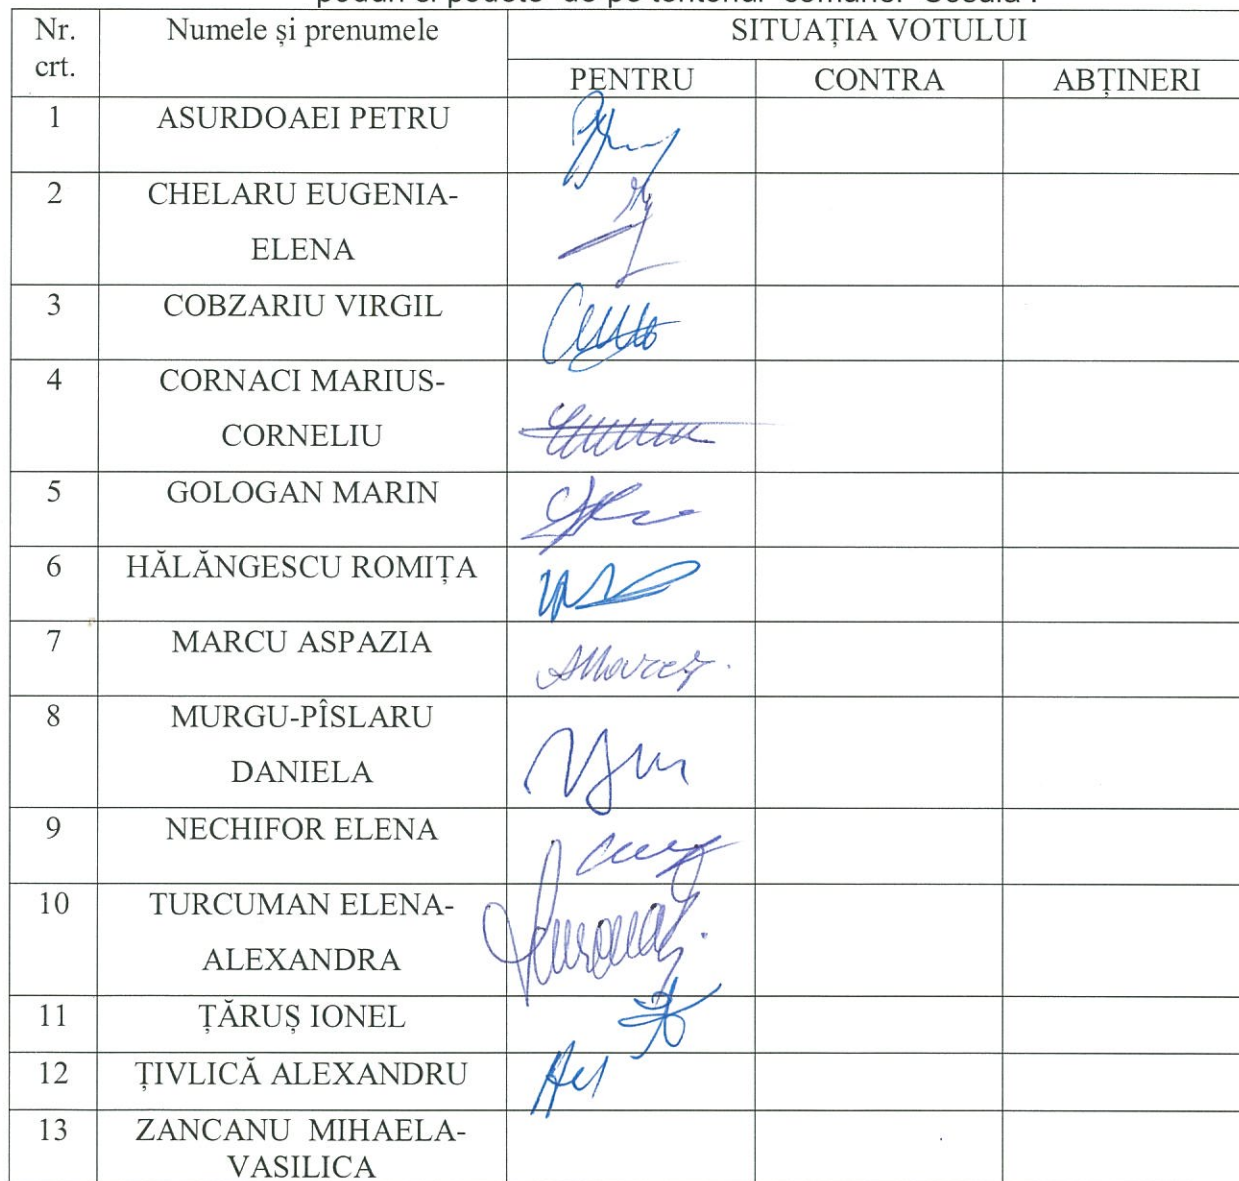 poduri si podete de pe teritoriul comunei
Nr. crt. Numele și prenumele SITUAȚIA VOTULUI
PENTRU CONTRA ABȚINERI
1 ASURDOAEI PETRU
2 CHELARU EUGENIA-
ELENA
3 COBZARIU VIRGIL
4 CORNACI MARIUS-
CORNELIU
5 GOLOGAN MARIN
6 HĂLĂNGESCU ROMIȚA
7 MARCU ASPAZIA
8 MURGU-PÎSLARU
DANIELA
9 NECHIFOR ELENA
10 TURCUMAN ELENA-
ALEXANDRA
11 ȚĂRUȘ IONEL
12 ȚIVLICĂ ALEXANDRU
13 ZANCANU MIHAELA-
VASILICA